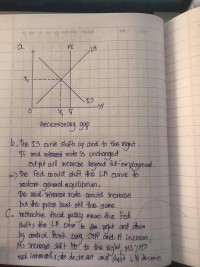 a.
r
FE
LM
r₁
IS
0
Y₁ Y̅ Y
Recessionary gap
b. The IS curve shift up and to the right.
If real interest rate is unchanged
output will increase beyond full-employment
=> the Fed could shift the LM curve to
restore general equilibrium.
The real interest rate would increase
but the price level still the same.
C. restrictive fiscal policy mean the Fed
shifts the LM curve to the right and down
by control
Ms increase shift to the right,
real interest rate decrease and shift LM